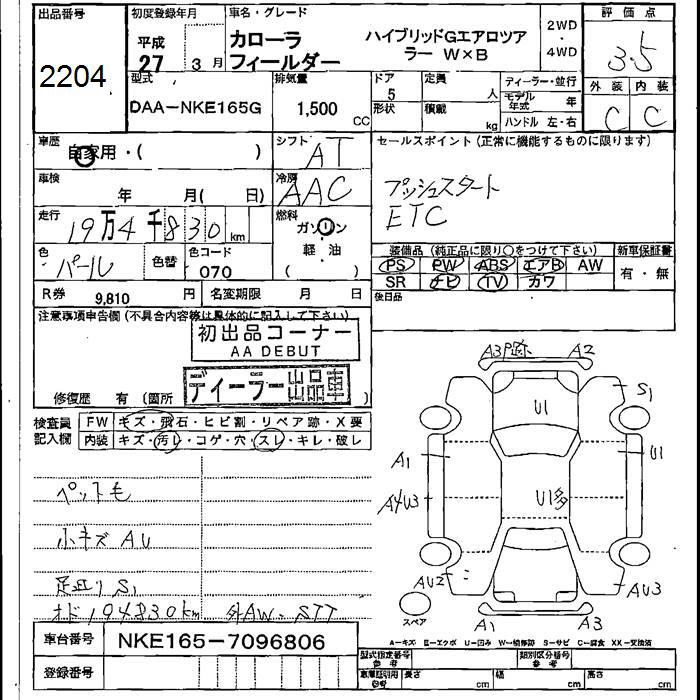 出品番号 初度登録年月 車名・グレード 2WD・4WD 評価点
2204 平成27 3月 カローラフィールダー ハイブリッドGエアロツアラー W×B 3.5
型式 排気量 ドア 定員 ディーラー・並行 外装 内装
DAA-NKE165G 1,500 CC 5 人 モデル年式 年 C C
形状 積載 kg ハンドル 左・右
車歴 自家用・( ) シフト AT セールスポイント(正常に機能するものに限ります)
車検 年 月( 日) 冷房 AAC プッシュスタート
走行 19万4千830km 燃料 ガソリン ETC
軽・油
色 パール 色替 色コード 070 ( )
装備品(純正品に限り○をつけて下さい) 新車保証書
PS PW ABS エアB AW 有・無
SR ナビ TV カワ
R券 9,810円 名変期限 月 日 後日品
注意事項申告欄(不具合内容等は具体的に記入して下さい)
初出品コーナー
AA DEBUT
ディーラー出品車
修復歴 有(箇所 )
検査員記入欄 FW キズ・飛石・ヒビ割・リペア跡・X要
内装 キズ・汚レ・コゲ・穴・スレ・キレ・破レ
ペット毛
小キズ AU
足廻り S1
オド194830km 外AW・STT
A3 跡 A2
S1
U1
A1 U1
A4U3 U1多
AU2 AU3
スペア A1 A3
A-キズ E-エクボ U-凹み W-補修跡 S-サビ C-腐食 XX-交換済
車台番号 NKE165-7096806
登録番号
型式指定番号 参考 類別区分番号 参考
参考 長さ cm 幅 cm 高さ cm